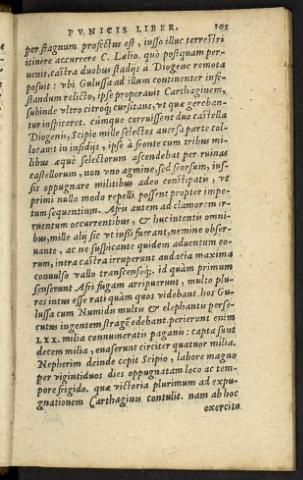 PVNICIS LIBER. 103
per stagnum profectus est, iusso illuc terrestri
itinere accurrere C. Lælio. quò posiquam per-
uenit, castra duobus stadijs à Diogene remota
posuit: vbi Gulussa ad illum continenter infi-
standum relicto, ipse properauit Carthaginem,
subinde vltro citroq; cursitans, vt quæ gereban-
tur inspiceret. cúmque corruissent duo castella
Diogenis, Scipio mille selectos auersa parte col-
locauit in insidijs, ipse à fronte cum tribus mi-
libus æquè selectorum ascendebat per ruinas
castellorum, non vno agmine, sed seorsum, ius-
sis oppugnare militibus adeo constipatis, vt
primi nullo modo repelli possent propter impe-
tum sequentium. Afri autem ad clamorem ir-
ruentum occurrentibus, & huc intentis omni-
bus, mille alij sic vt iussi fuerant, nemine obser-
uante, ac ne suspicante quidem aduentum eo-
rum, intra castra irruperunt audacia maxima
conuulso vallo transcensóq;. id quàm primum
senserunt Afri fugam arripuerunt, multo plu-
res intus esse rati quàm quos videbant. hos Gu-
lussa cum Numidis multis & elephantis perse-
cutus ingentem stragē edebant. perierunt enim
LXX. milia connumeratis paganis: capta sunt
decem milia, euaserunt circiter quatuor milia.
Nepherim deinde cepit Scipio, labore magno
per vigintiduos dies oppugnatam loco ac tem-
pore frigido. quæ victoria plurimum ad expu-
gnationem Carthaginis contulit. nam ab hoc
exercitu